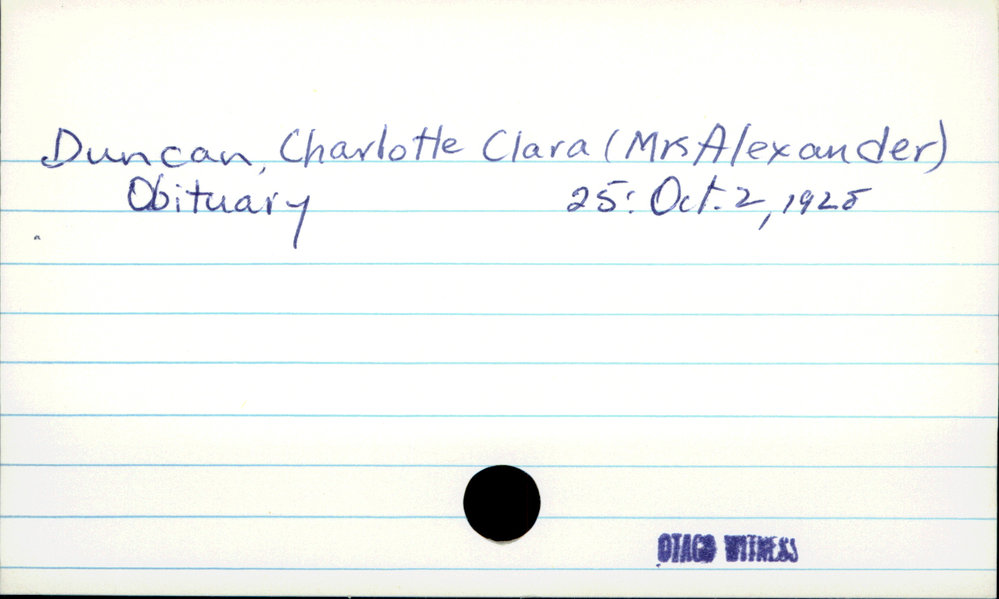 Duncan, Charlotte Clara (Mrs Alexander)
Obituary 25: Oct. 2, 1928
OTAGO WITNESS